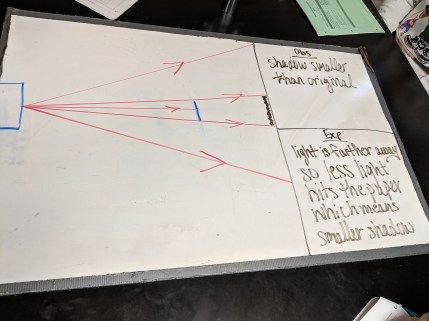 Obs
shadow smaller
than original
Exp
light is farther away
so less light
hits the paper
which means
smaller shadow